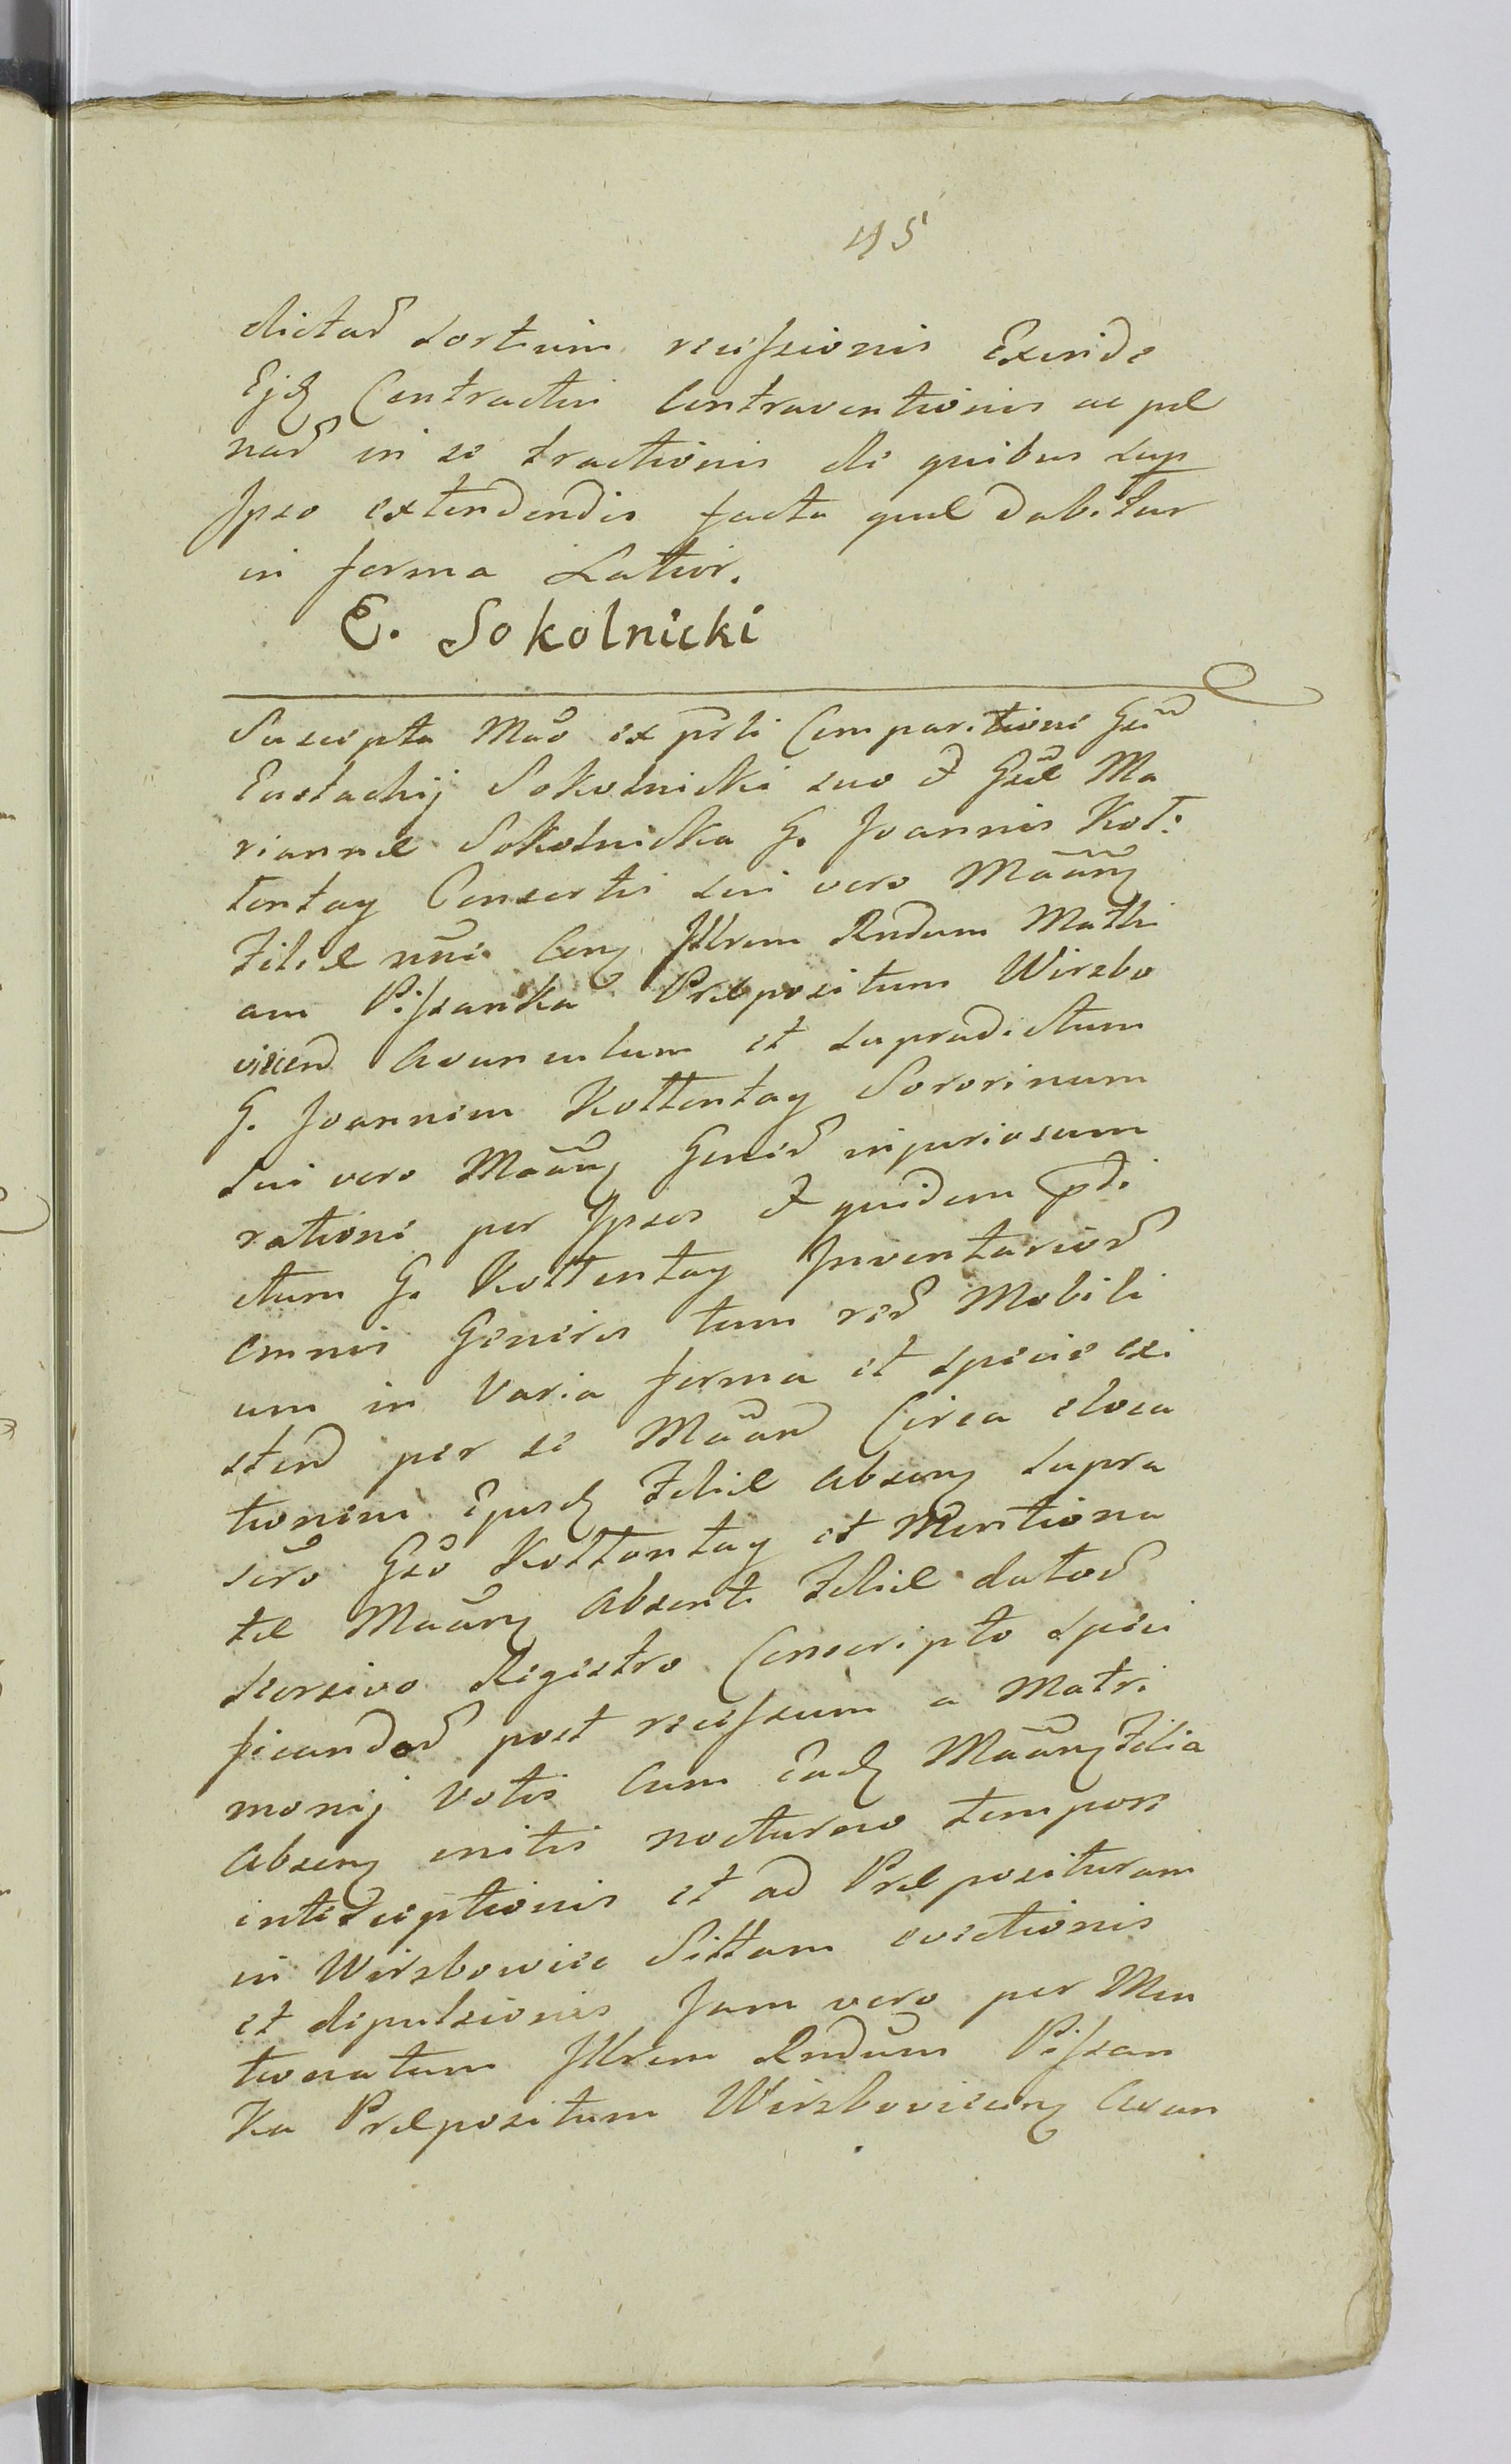 195
dictar Sortium recessionis Exinde
Ejq Contractui Contraventionis ac pæ
nar in se tractionis de quibus sup
Ipso extendendis facta quæ dabitur
in forma Latior.
E. Sokolnicki
Suscepta Mão ex prli Comparitione Gsi
Eustachij Sokolnicki suo et Gsæ Ma
riannæ Sokolnicka G. Joannis Kot:
tontay Consortis sui vero Mãang
Filiæ nñe Cong Illrem Rndum Mathi
am Pissanka Præpositum Wirzbo
vicen Avunculum et supradictum
G. Joannem Kottontay Sororinum
sui vero Mãang Generum injuriosum
ratione per Ipsos et quidem pdi
ctum G. Kottontay Inventarior
omnis Generis tum rer Mobili
um in Varia forma et specie exi
sten per se Mãan Circa eloca
tionem Ejusdq Filiæ abseng supra
scro Gso Kottontay et Mentiona
tæ Mãang absenti Filiæ dator
seorsivo Registro Conscripto speci
ficandor post recessum a Matri
monij Votis Cum Eadq Mãang Filia
absenq initis nocturno tempore
interceptionis et ad Præposituram
in Wirzbowiec Sittam evectionis
et depulsionis Jam vero per Men
tionatum Illrem Rndum Pissan
Ka Præpositum Wirzboviceng avun